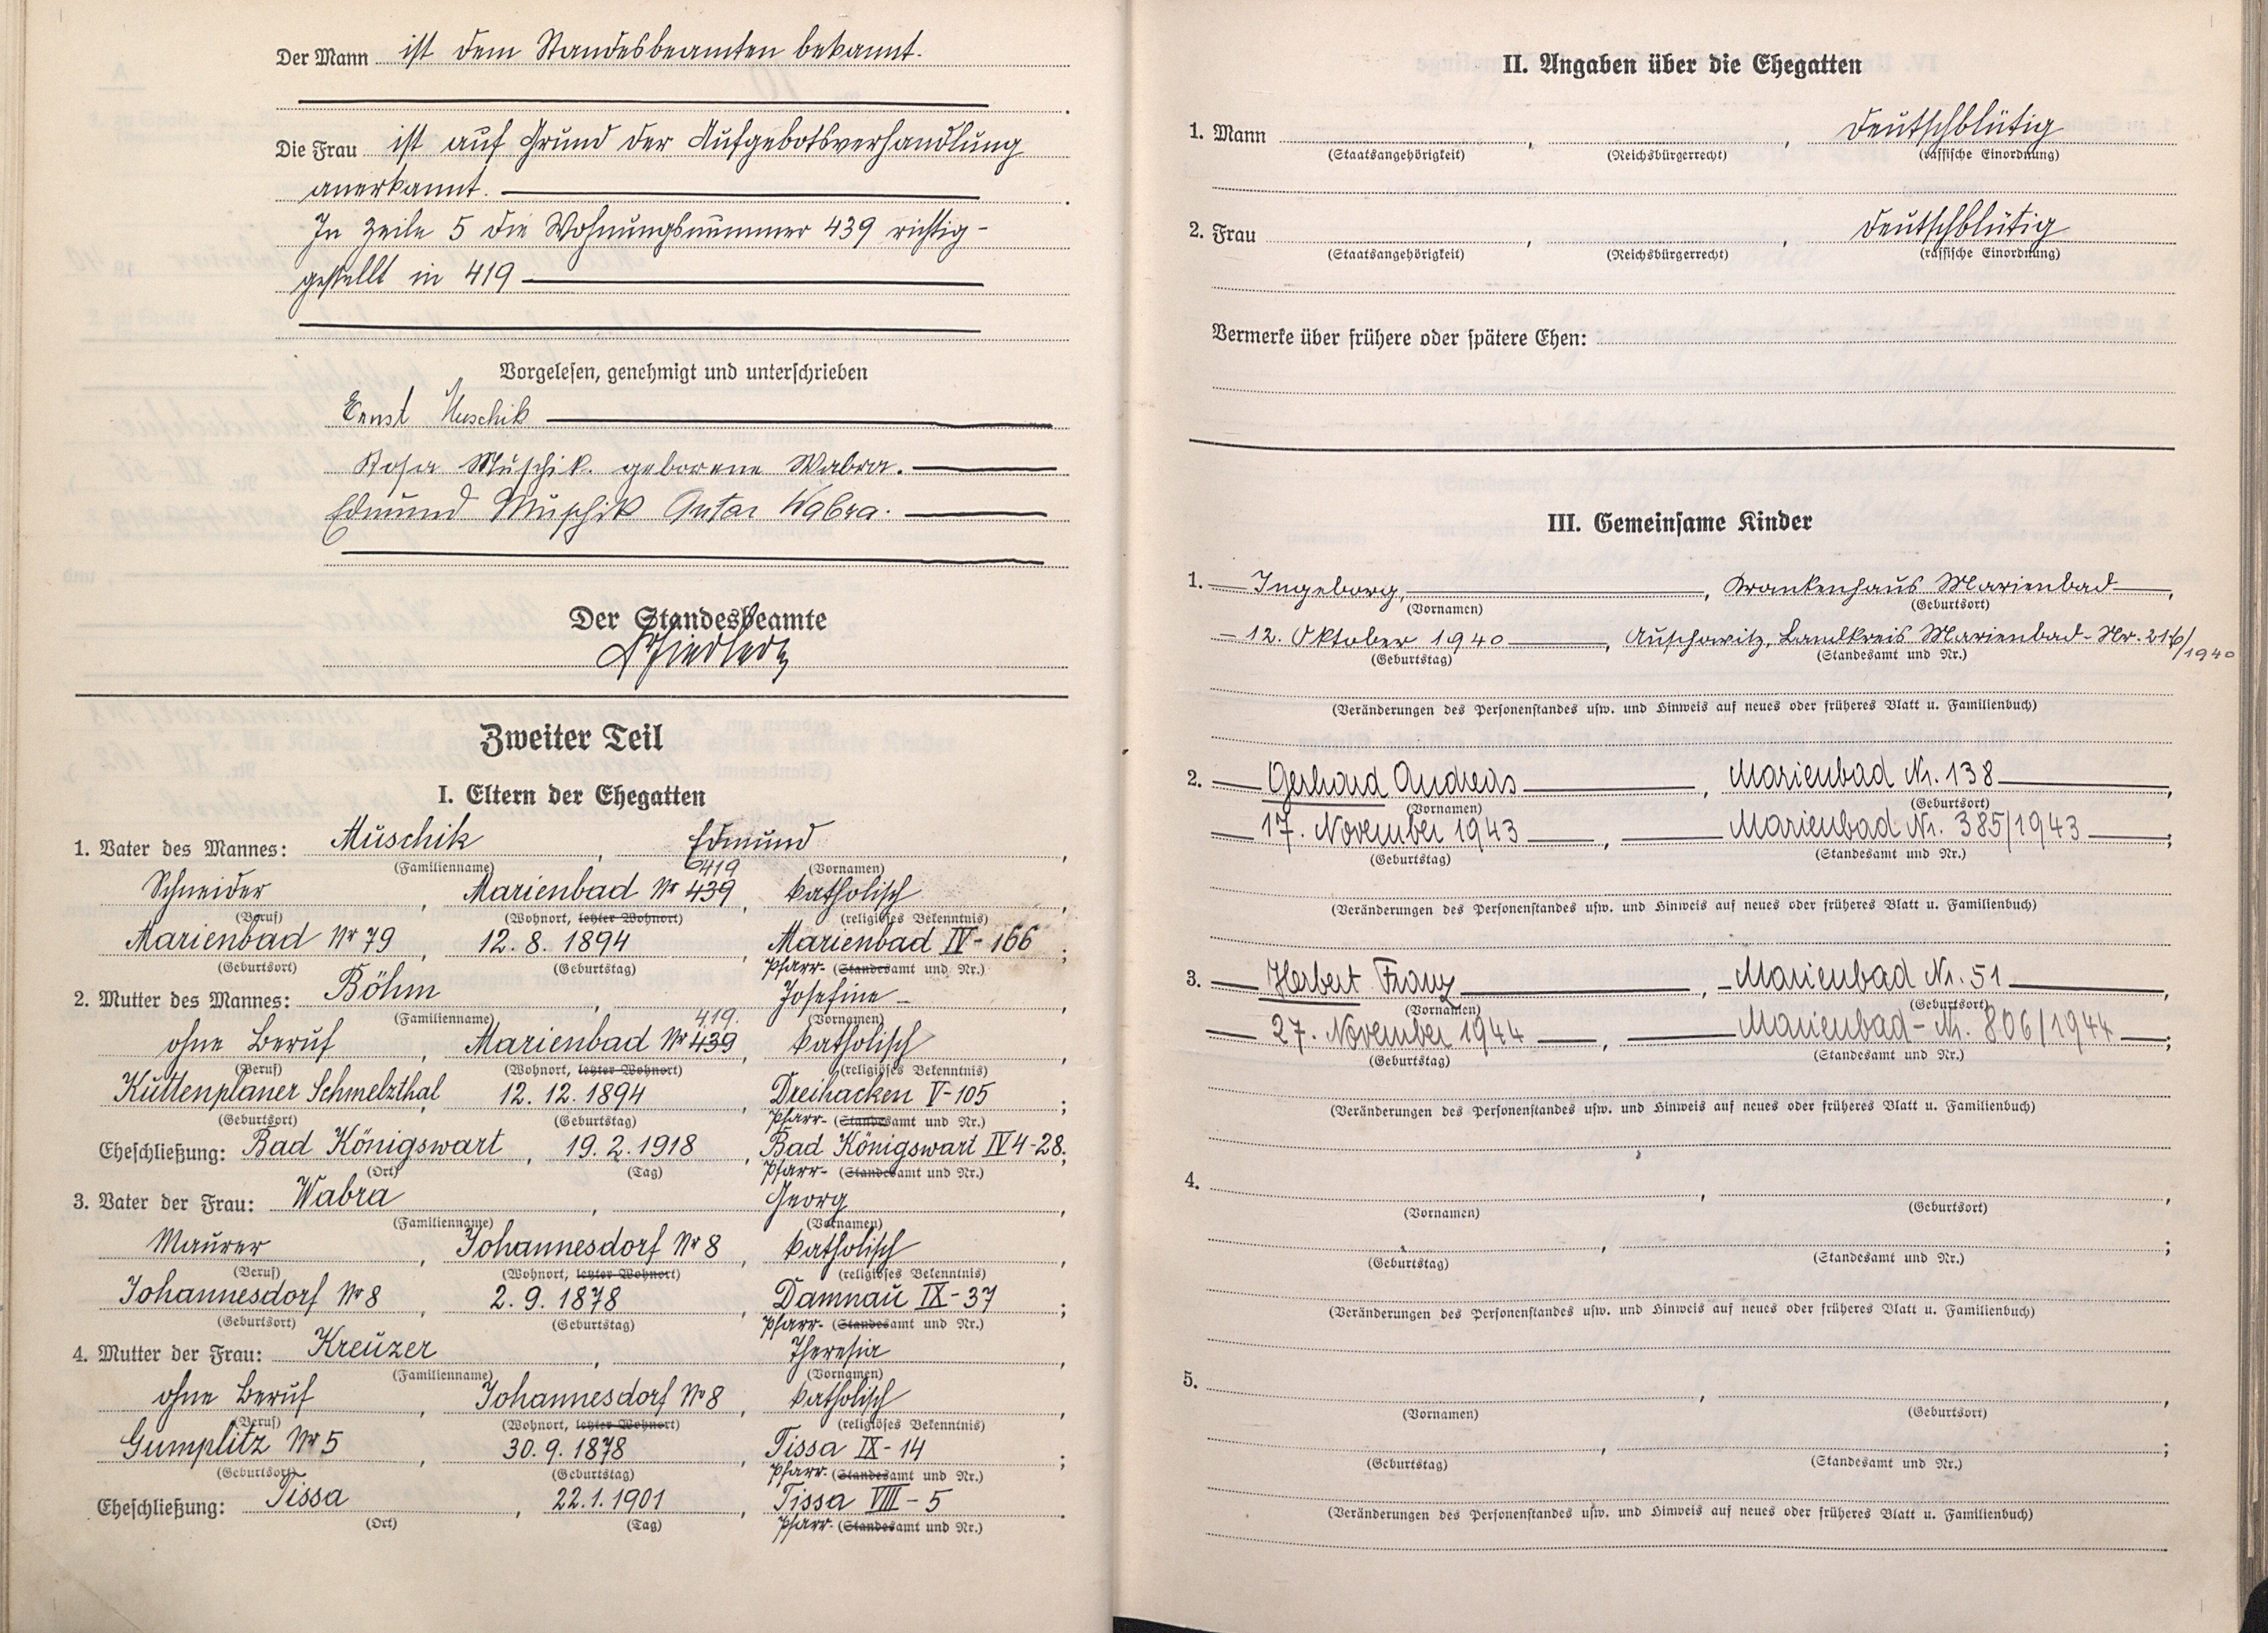 Der Mann ist dem Standesbeamten bekannt.
Die Frau ist auf Grund der Aufgebotsverhandlung
anerkannt.
In Zeile 5 die Wohnungsnummer 439 richtig-
gestellt in 419
Vorgelesen, genehmigt und unterschrieben
Ernst Muschik
Rosa Muschik geborene Wabra.
Edmund Muschik Anton Wabra.
Der Standesbeamte
Zweiter Teil
I. Eltern der Ehegatten
1. Vater des Mannes: Muschik, Edmund,
(Familienname) (Vornamen)
419
Schneider, Marienbad Nr 439, katholisch,
(Beruf) (Wohnort, letzter Wohnort) (religiöses Bekenntnis)
Marienbad Nr 79, 12. 8. 1894, Marienbad IV - 166;
(Geburtsort) (Geburtstag) Pfarr- (Standesamt und Nr.)
2. Mutter des Mannes: Böhm, Josefine,
(Familienname) (Vornamen)
419.
ohne Beruf, Marienbad Nr 439, katholisch,
(Beruf) (Wohnort, letzter Wohnort) (religiöses Bekenntnis)
Kuttenplaner Schmelzthal, 12. 12. 1894, Dreihacken V-105;
(Geburtsort) (Geburtstag) Pfarr- (Standesamt und Nr.)
Eheschließung: Bad Königswart, 19. 2. 1918, Bad Königswart IV 4-28.
(Ort) (Tag) Pfarr- (Standesamt und Nr.)
3. Vater der Frau: Wabra, Georg,
(Familienname) (Vornamen)
Maurer, Johannesdorf Nr 8, katholisch,
(Beruf) (Wohnort, letzter Wohnort) (religiöses Bekenntnis)
Johannesdorf Nr 8, 2. 9. 1878, Damnau IX - 37;
(Geburtsort) (Geburtstag) Pfarr- (Standesamt und Nr.)
4. Mutter der Frau: Kreuzer, Theresia,
(Familienname) (Vornamen)
ohne Beruf, Johannesdorf Nr 8, katholisch,
(Beruf) (Wohnort, letzter Wohnort) (religiöses Bekenntnis)
Gumplitz Nr 5, 30. 9. 1878, Tissa IX - 14;
(Geburtsort) (Geburtstag) Pfarr- (Standesamt und Nr.)
Eheschließung: Tissa, 22. 1. 1901, Tissa VIII - 5.
(Ort) (Tag) Pfarr- (Standesamt und Nr.)
II. Angaben über die Ehegatten
1. Mann , , deutschblütig
(Staatsangehörigkeit) (Reichsbürgerrecht) (rassische Einordnung)
2. Frau , , deutschblütig
(Staatsangehörigkeit) (Reichsbürgerrecht) (rassische Einordnung)
Vermerke über frühere oder spätere Ehen:
III. Gemeinsame Kinder
1. Ingeborg, Krankenhaus Marienbad,
(Vornamen) (Geburtsort)
12. Oktober 1940, Auschowitz, Landkreis Marienbad - Nr. 216/1940
(Geburtstag) (Standesamt und Nr.)
(Veränderungen des Personenstandes usw. und Hinweis auf neues oder früheres Blatt u. Familienbuch)
2. Gerhard Andreas, Marienbad Nr. 138,
(Vornamen) (Geburtsort)
17. November 1943, Marienbad Nr. 385/1943;
(Geburtstag) (Standesamt und Nr.)
(Veränderungen des Personenstandes usw. und Hinweis auf neues oder früheres Blatt u. Familienbuch)
3. Herbert Franz, Marienbad Nr. 51,
(Vornamen) (Geburtsort)
27. November 1944, Marienbad - Nr. 806/1944;
(Geburtstag) (Standesamt und Nr.)
(Veränderungen des Personenstandes usw. und Hinweis auf neues oder früheres Blatt u. Familienbuch)
4. , ,
(Vornamen) (Geburtsort)
, ;
(Geburtstag) (Standesamt und Nr.)
(Veränderungen des Personenstandes usw. und Hinweis auf neues oder früheres Blatt u. Familienbuch)
5. , ,
(Vornamen) (Geburtsort)
, ;
(Geburtstag) (Standesamt und Nr.)
(Veränderungen des Personenstandes usw. und Hinweis auf neues oder früheres Blatt u. Familienbuch)